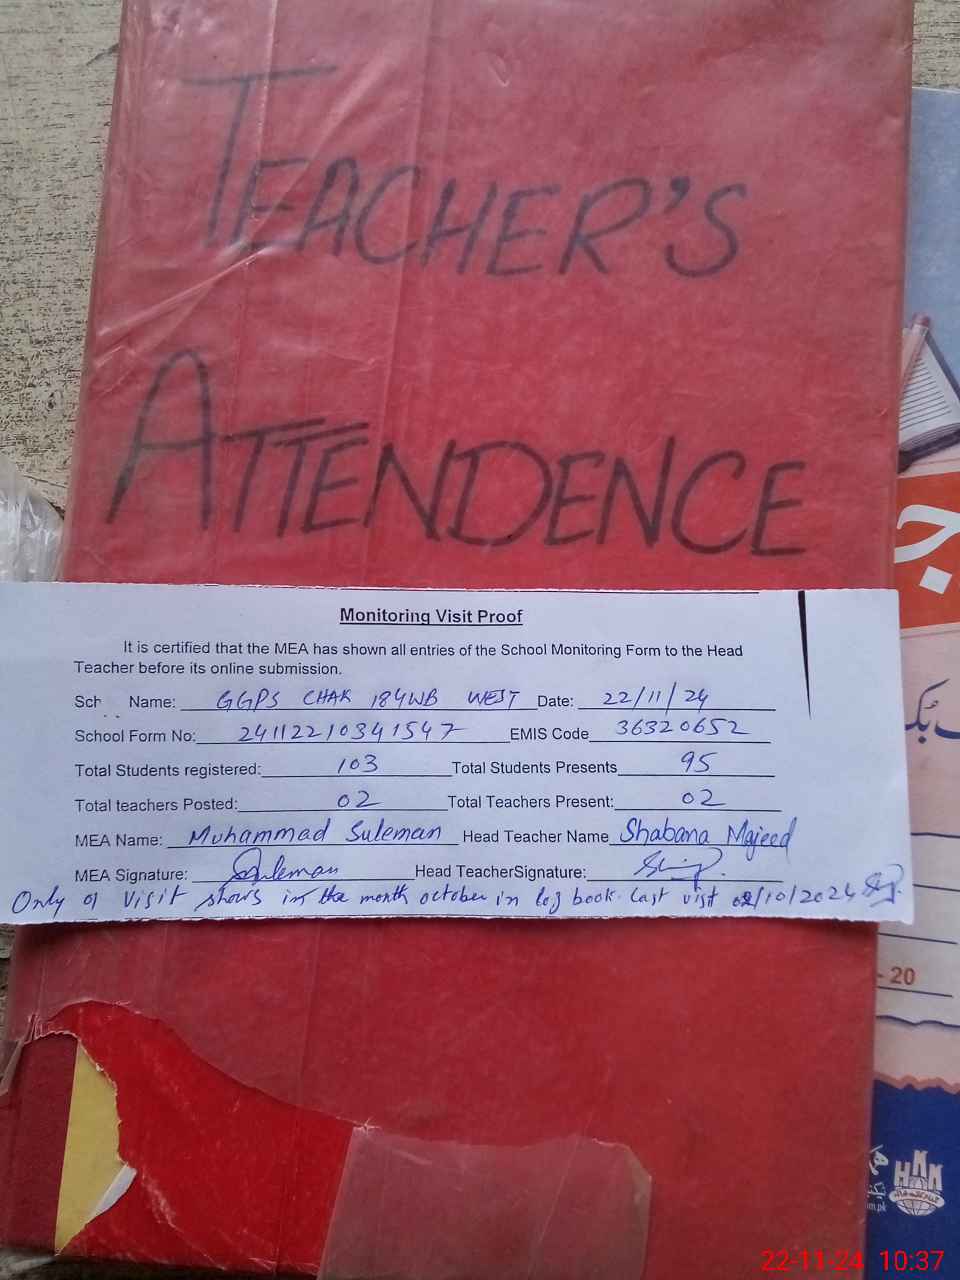 TEACHER'S
ATTENDENCE
Monitoring Visit Proof
It is certified that the MEA has shown all entries of the School Monitoring Form to the Head
Teacher before its online submission.
Sch Name: GGPS CHAK 184WB WEST Date: 22/11/24
School Form No: 24112210341547 EMIS Code 36320652
Total Students registered: 103 Total Students Presents 95
Total teachers Posted: 02 Total Teachers Present: 02
MEA Name: Muhammad Suleman Head Teacher Name Shabana Majeed
MEA Signature: Suleman Head TeacherSignature:
Only 01 visit shows in the month october in log book. Last visit /10/2024
- 20
HKK
m.pk
22-11-24 10:37